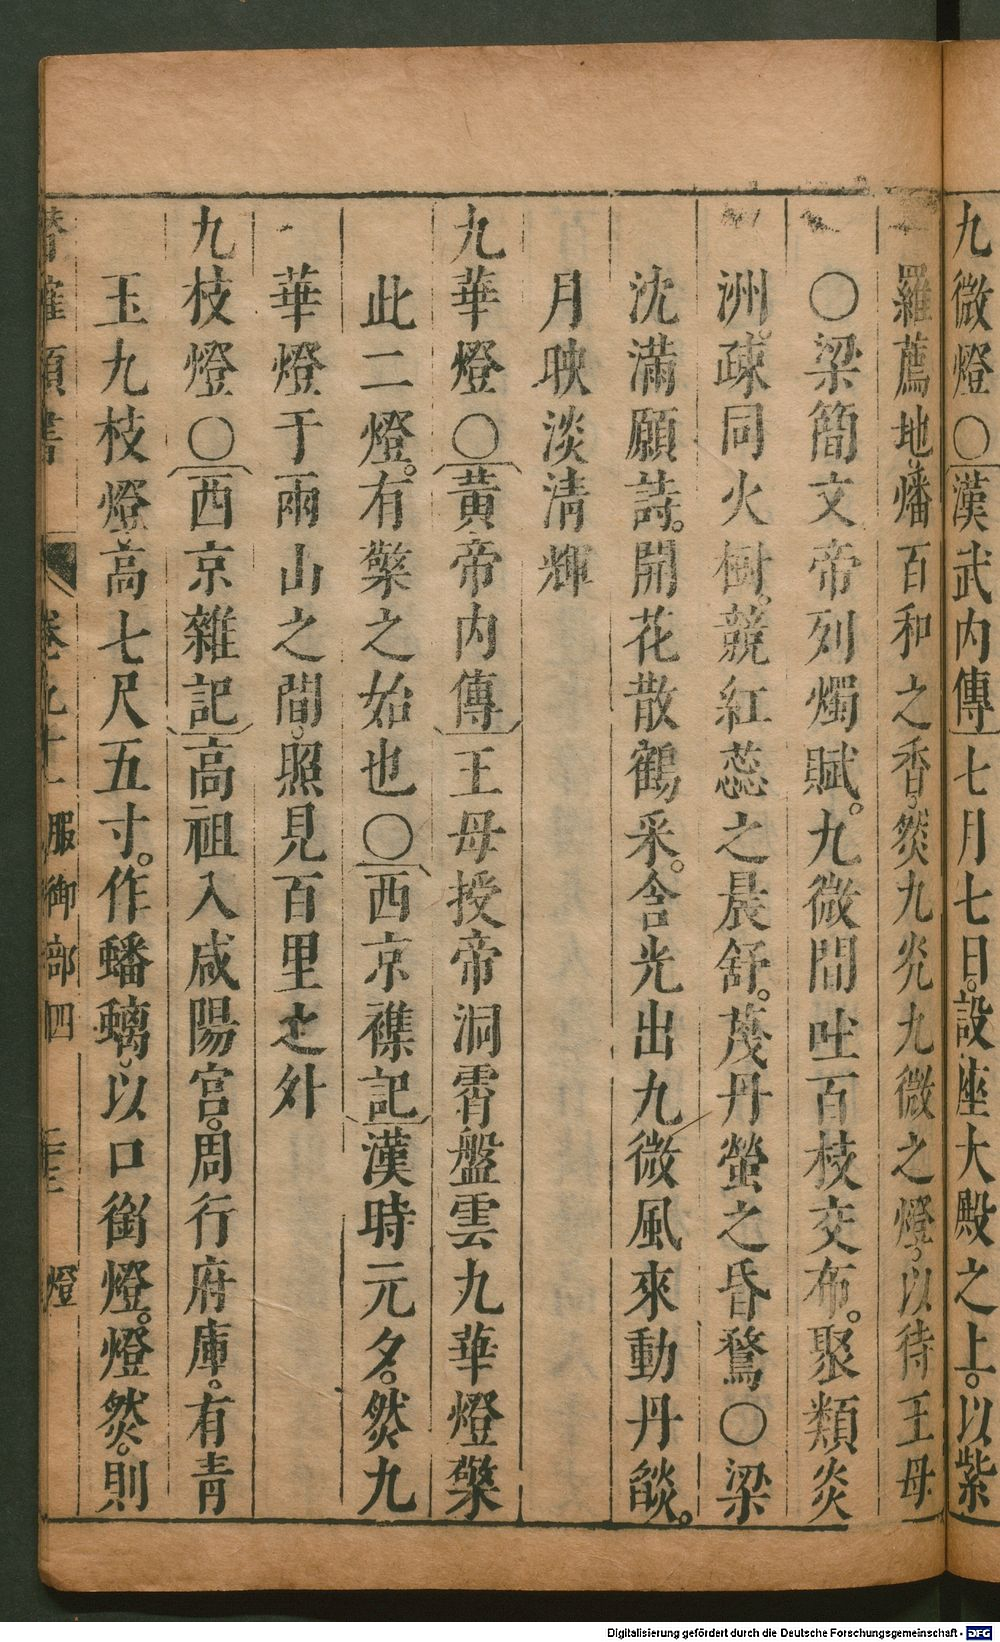 九微燈○漢武内傳七月七日。設座大殿之上。以紫
羅薦地。燔百和之香。然九光九微之燈。以待王母
○梁簡文帝列燭賦。九微間吐百枝交布。聚類炎
洲。疎同火樹。競紅蕊之晨舒。蔑丹螢之昏騖○梁
沈滿願詩。開花散鶴采。含光出九微風來動丹燄。
月映淡清輝
九華燈○黃帝内傳王母授帝洞霄盤雲九華燈檠
此二燈。有檠之始也○西京襍記漢時元夕。然九
華燈于兩山之間。照見百里之外
九枝燈○西京雜記高祖入咸陽宮。周行府庫。有青
玉九枝燈。高七尺五寸。作蟠螭。以口銜燈。燈然。則
類書 卷九十一 服御部四 燈
Digitalisierung gefördert durch die Deutsche Forschungsgemeinschaft - DFG